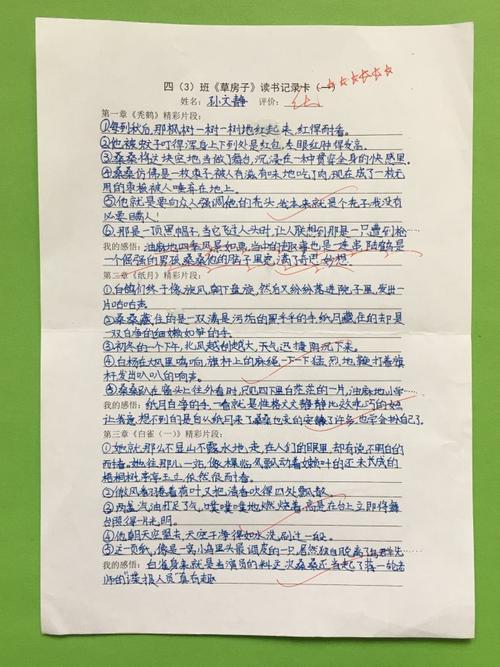 四（3）班《草房子》读书记录卡（一）
姓名：孙文静 评价：
第一章《秃鹤》精彩片段：
①每到秋后，那枫树一树一树地红起来，红得耐看。
②他被蚊子叮得浑身上下到处是红包，左眼红肿得发亮。
③桑桑将这块空地当做了舞台，沉浸在一种贯穿全身的快感里。
④桑桑仿佛是一枚枣子，被人有滋有味地吃了肉，现在成了一枚无
用的枣核被人唾弃在地上。
⑤他就是要向众人强调他的秃头：我本来就是个秃子，我没有
必要瞒人！
⑥那是一顶黑帽子，当它飞过人头时，让人联想到那是一只遭到枪
我的感悟：油麻地四季风景如画，当中的趣事也是一连串，陆鹤是
一个倔强的男孩，桑桑他的脑子里充满了奇思妙想。
第二章《纸月》精彩片段：
①白鸽们终于像旋风，朝下盘旋，然后又纷纷落进院子里，发出一
片咕咕声
②桑桑藏住的是一双满是污垢的黑乎乎的手，纸月藏住的却是
一双白净的细嫩如笋的手。
③初冬的一个下午，北风越刮越大，天气迅捷阴沉下来。
④白杨在大风里鸣响，旗杆上的麻绳一下一下猛烈地鞭打着旗
杆发出叭叭的响声。
⑤桑桑趴在窗头上往外看时，只见四下里白茫茫的一片，油麻地小学
我的感悟：纸月白净的手，一看就是性格文文静静比较乖巧的
让我意想不到的是自从纸月来了桑桑也变的安静了许多，也学会扮自己了。
第三章《白雀（一）》精彩片段：
①她就那么不显山不露水地，走，在人们的眼里，却有说不明白的
而待看。她往那儿一站，像棵临风飘动着嫩叶的还未长成的
梧桐树，亭亭玉立，依然很而待看。
②微风翻卷着荷叶，又把清香吹得四处飘散。
③两盏汽油灯足了气，噗噗噗地燃烧着，高悬在台上立即将舞
台照得一片光明。
④他朝天空望去，天空干净得如水洗刷过一般。
⑤这一页纸，像是一窝小鸟里头最调皮的一只，居然独自脱离了
我的感悟：白雀身来就是当演员的料，这次桑桑还当起了蒋一轮老
师的"谍报人员"真有趣